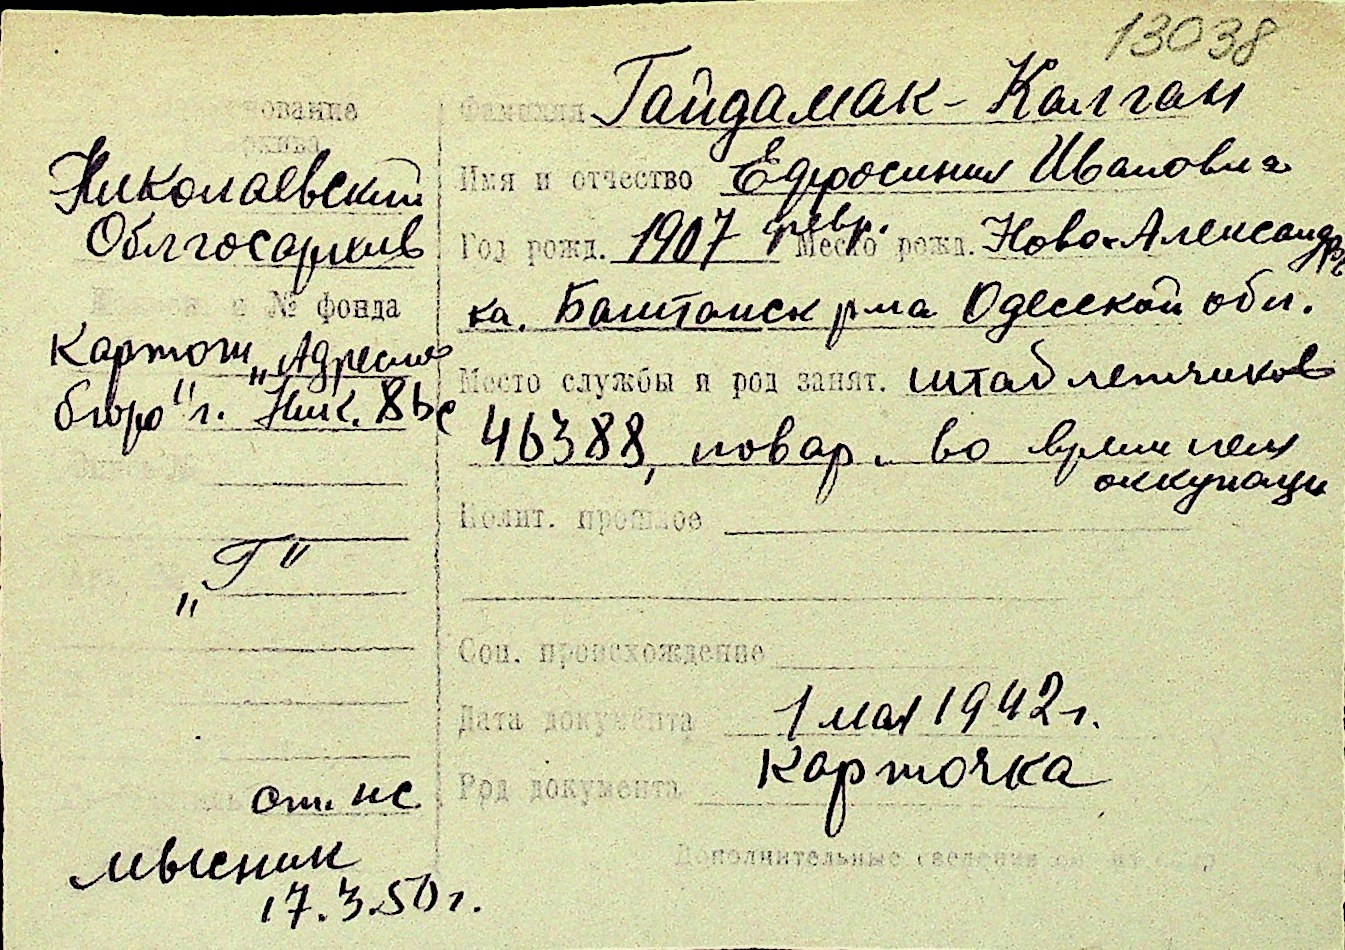 13038
Фамилия Гайдамак - Калган
Имя и отчество Ефросиния Ивановна
Год рожд. 1907 февр. Место рожд. Ново-Александров
ка. Баштанск р-на Одесской обл.
Место службы и род занят. штаб летчиков
46388, повар. во время нем
оккупаци
Полит. прошлое
Соц. происхождение
Дата документа 1 мая 1942 г.
Род документа Карточка
Дополнительные сведения
Николаевский
Облгосархив
№ фонда
Картот „Адресно
бюро" г. Ник.
„Г"
17.3.50 г.